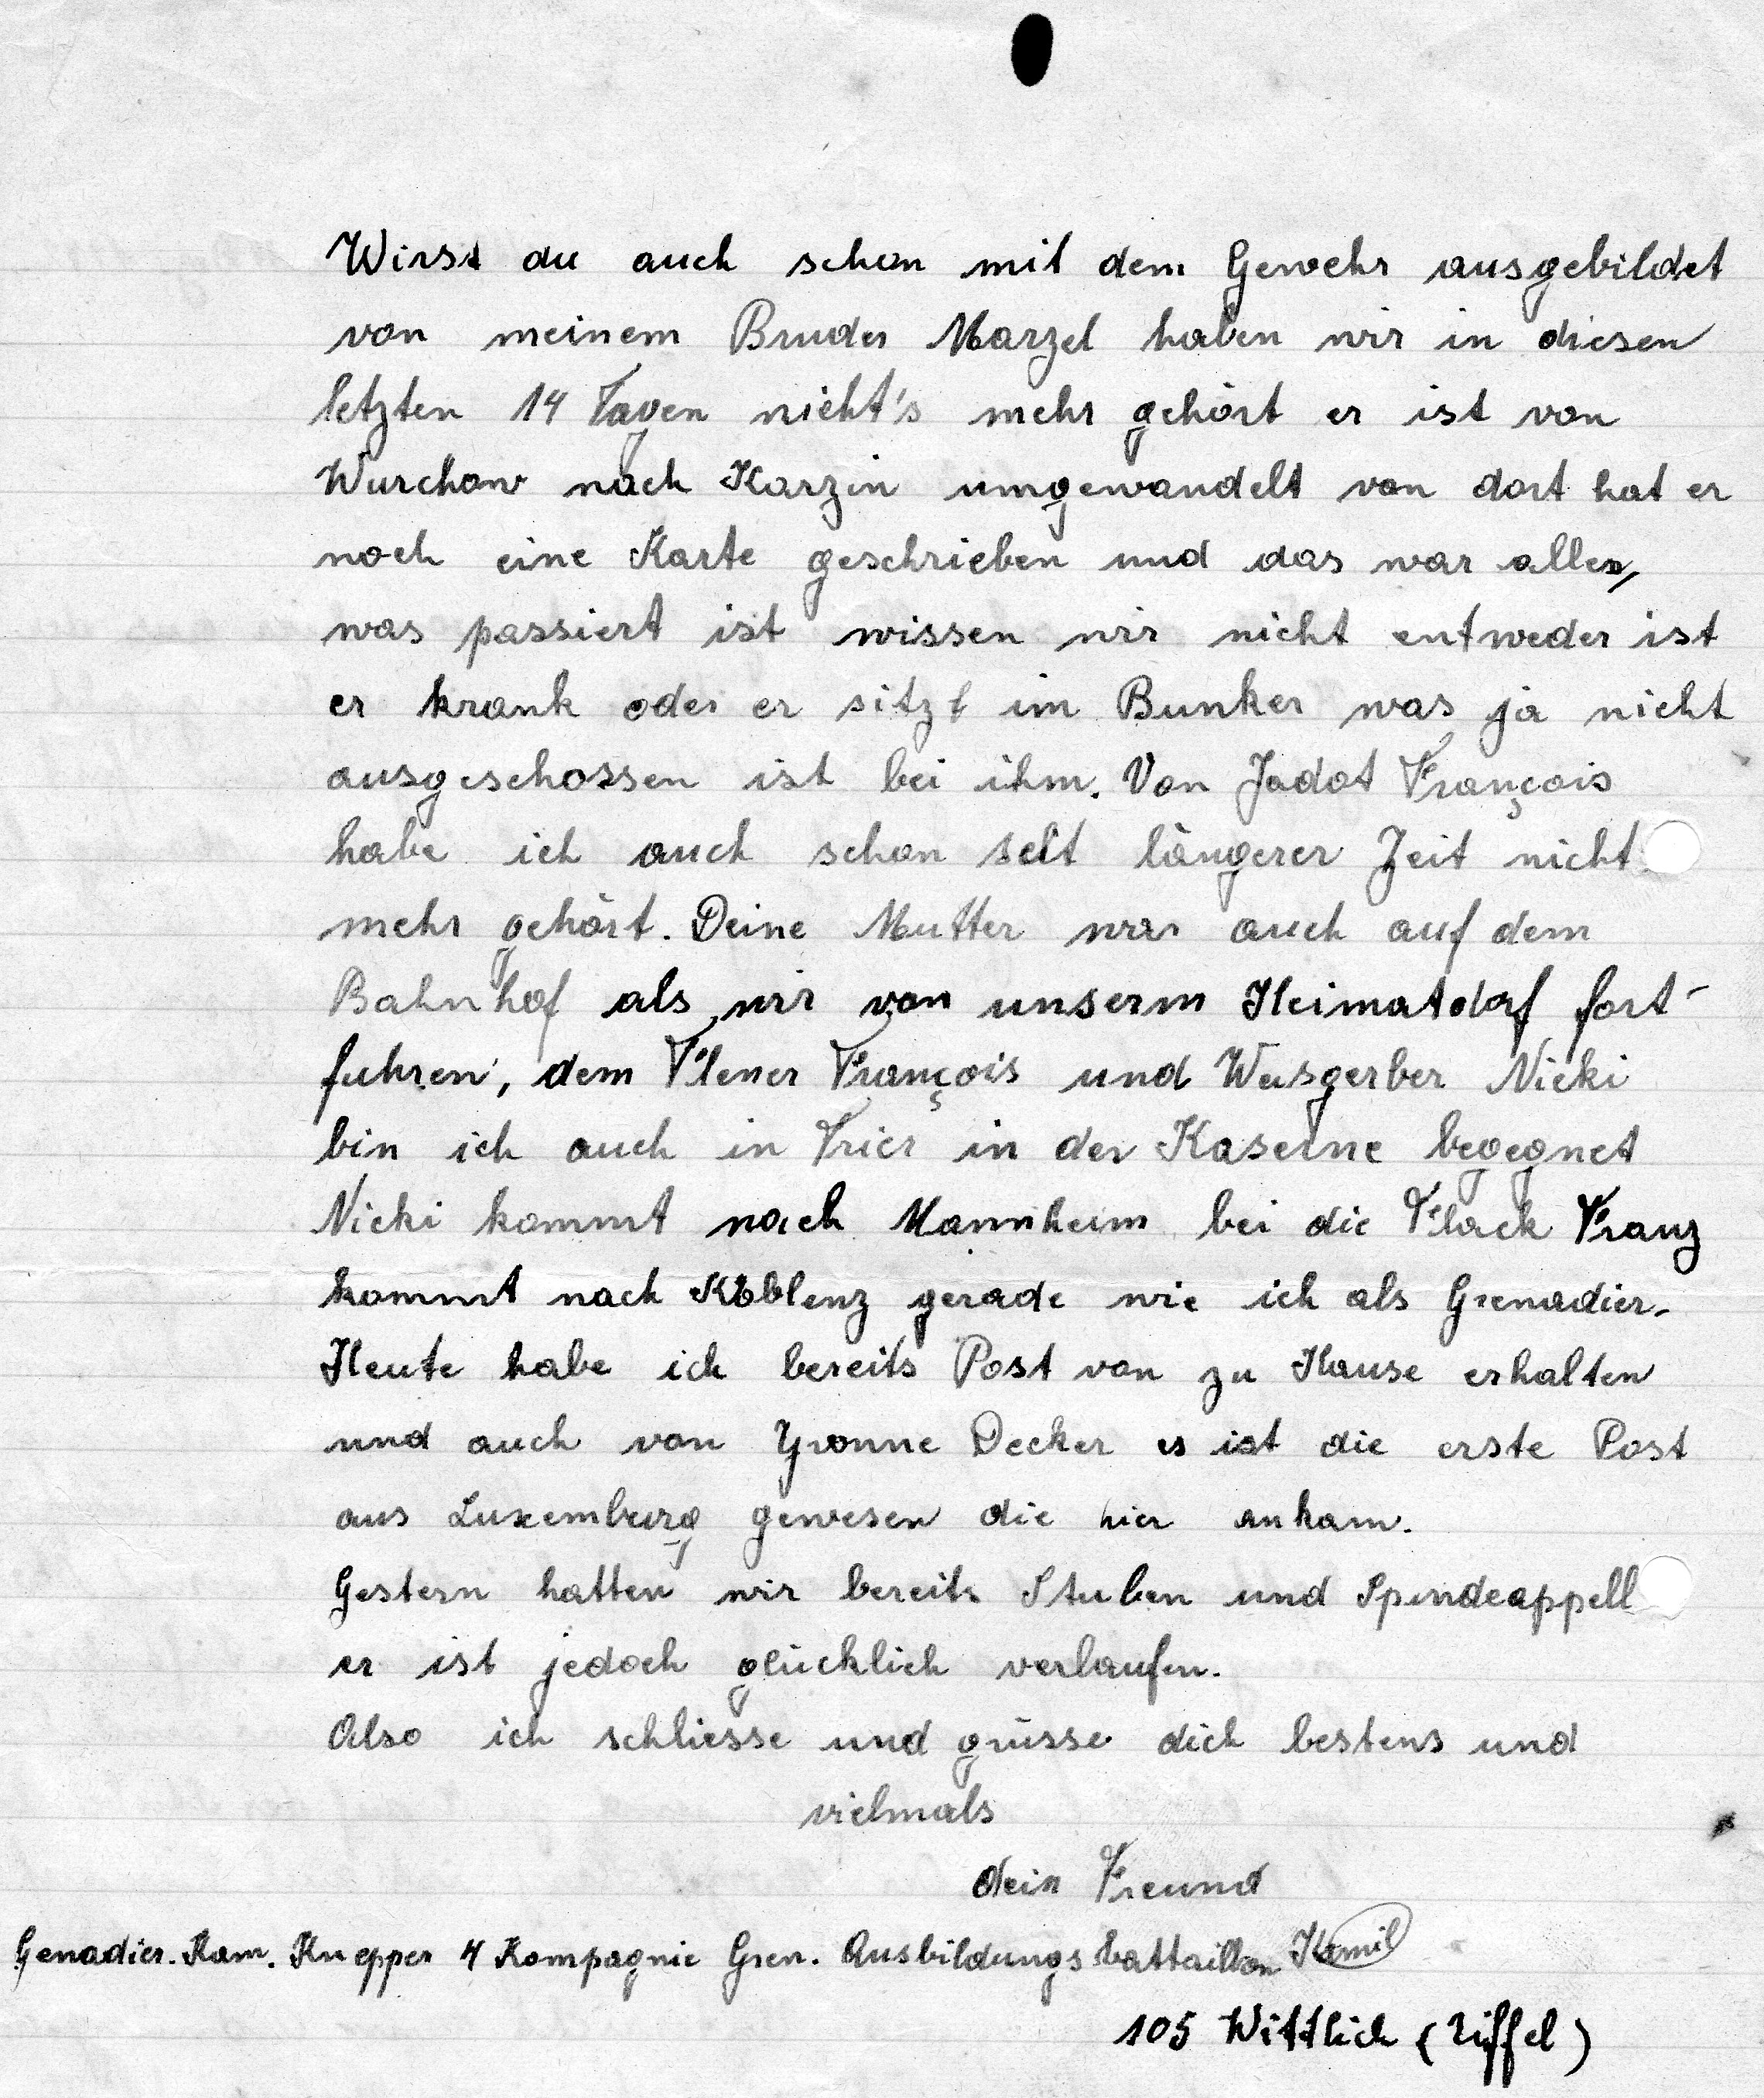 Wirst du auch schon mit dem Gewehr ausgebildet
von meinem Bruder Marzel haben wir in diesen
letzten 14 Tagen nicht's mehr gehört er ist von
Wurchow nach Karzin umgewandelt von dort hat er
noch eine Karte geschrieben und das war alles,
was passiert ist wissen wir nicht entweder ist
er krank oder er sitzt im Bunker was ja nicht
ausgeschossen ist bei ihm. Von Jadot François
habe ich auch schon seit längerer Zeit nicht
mehr gehört. Deine Mutter war auch auf dem
Bahnhof als wir von unserm Heimatdorf fort-
fuhren, dem Flener François und Weisgerber Nicki
bin ich auch in Trier in der Kaserne begegnet
Nicki kommt nach Mannheim bei die Flack Franz
kommt nach Koblenz gerade wie ich als Grenadier.
Heute habe ich bereits Post von zu Hause erhalten
und auch von Yvonne Decker es ist die erste Post
aus Luxemburg gewesen die hier ankam.
Gestern hatten wir bereits Stuben und Spindeappell
er ist jedoch glücklich verlaufen.
Also ich schliesse und grüsse dich bestens und
vielmals
dein Freund
Genadier. Kam. Knepper 4 Kompagnie Gren. Ausbildungsbattaillon Kamil
105 Wittlich (Eiffel)